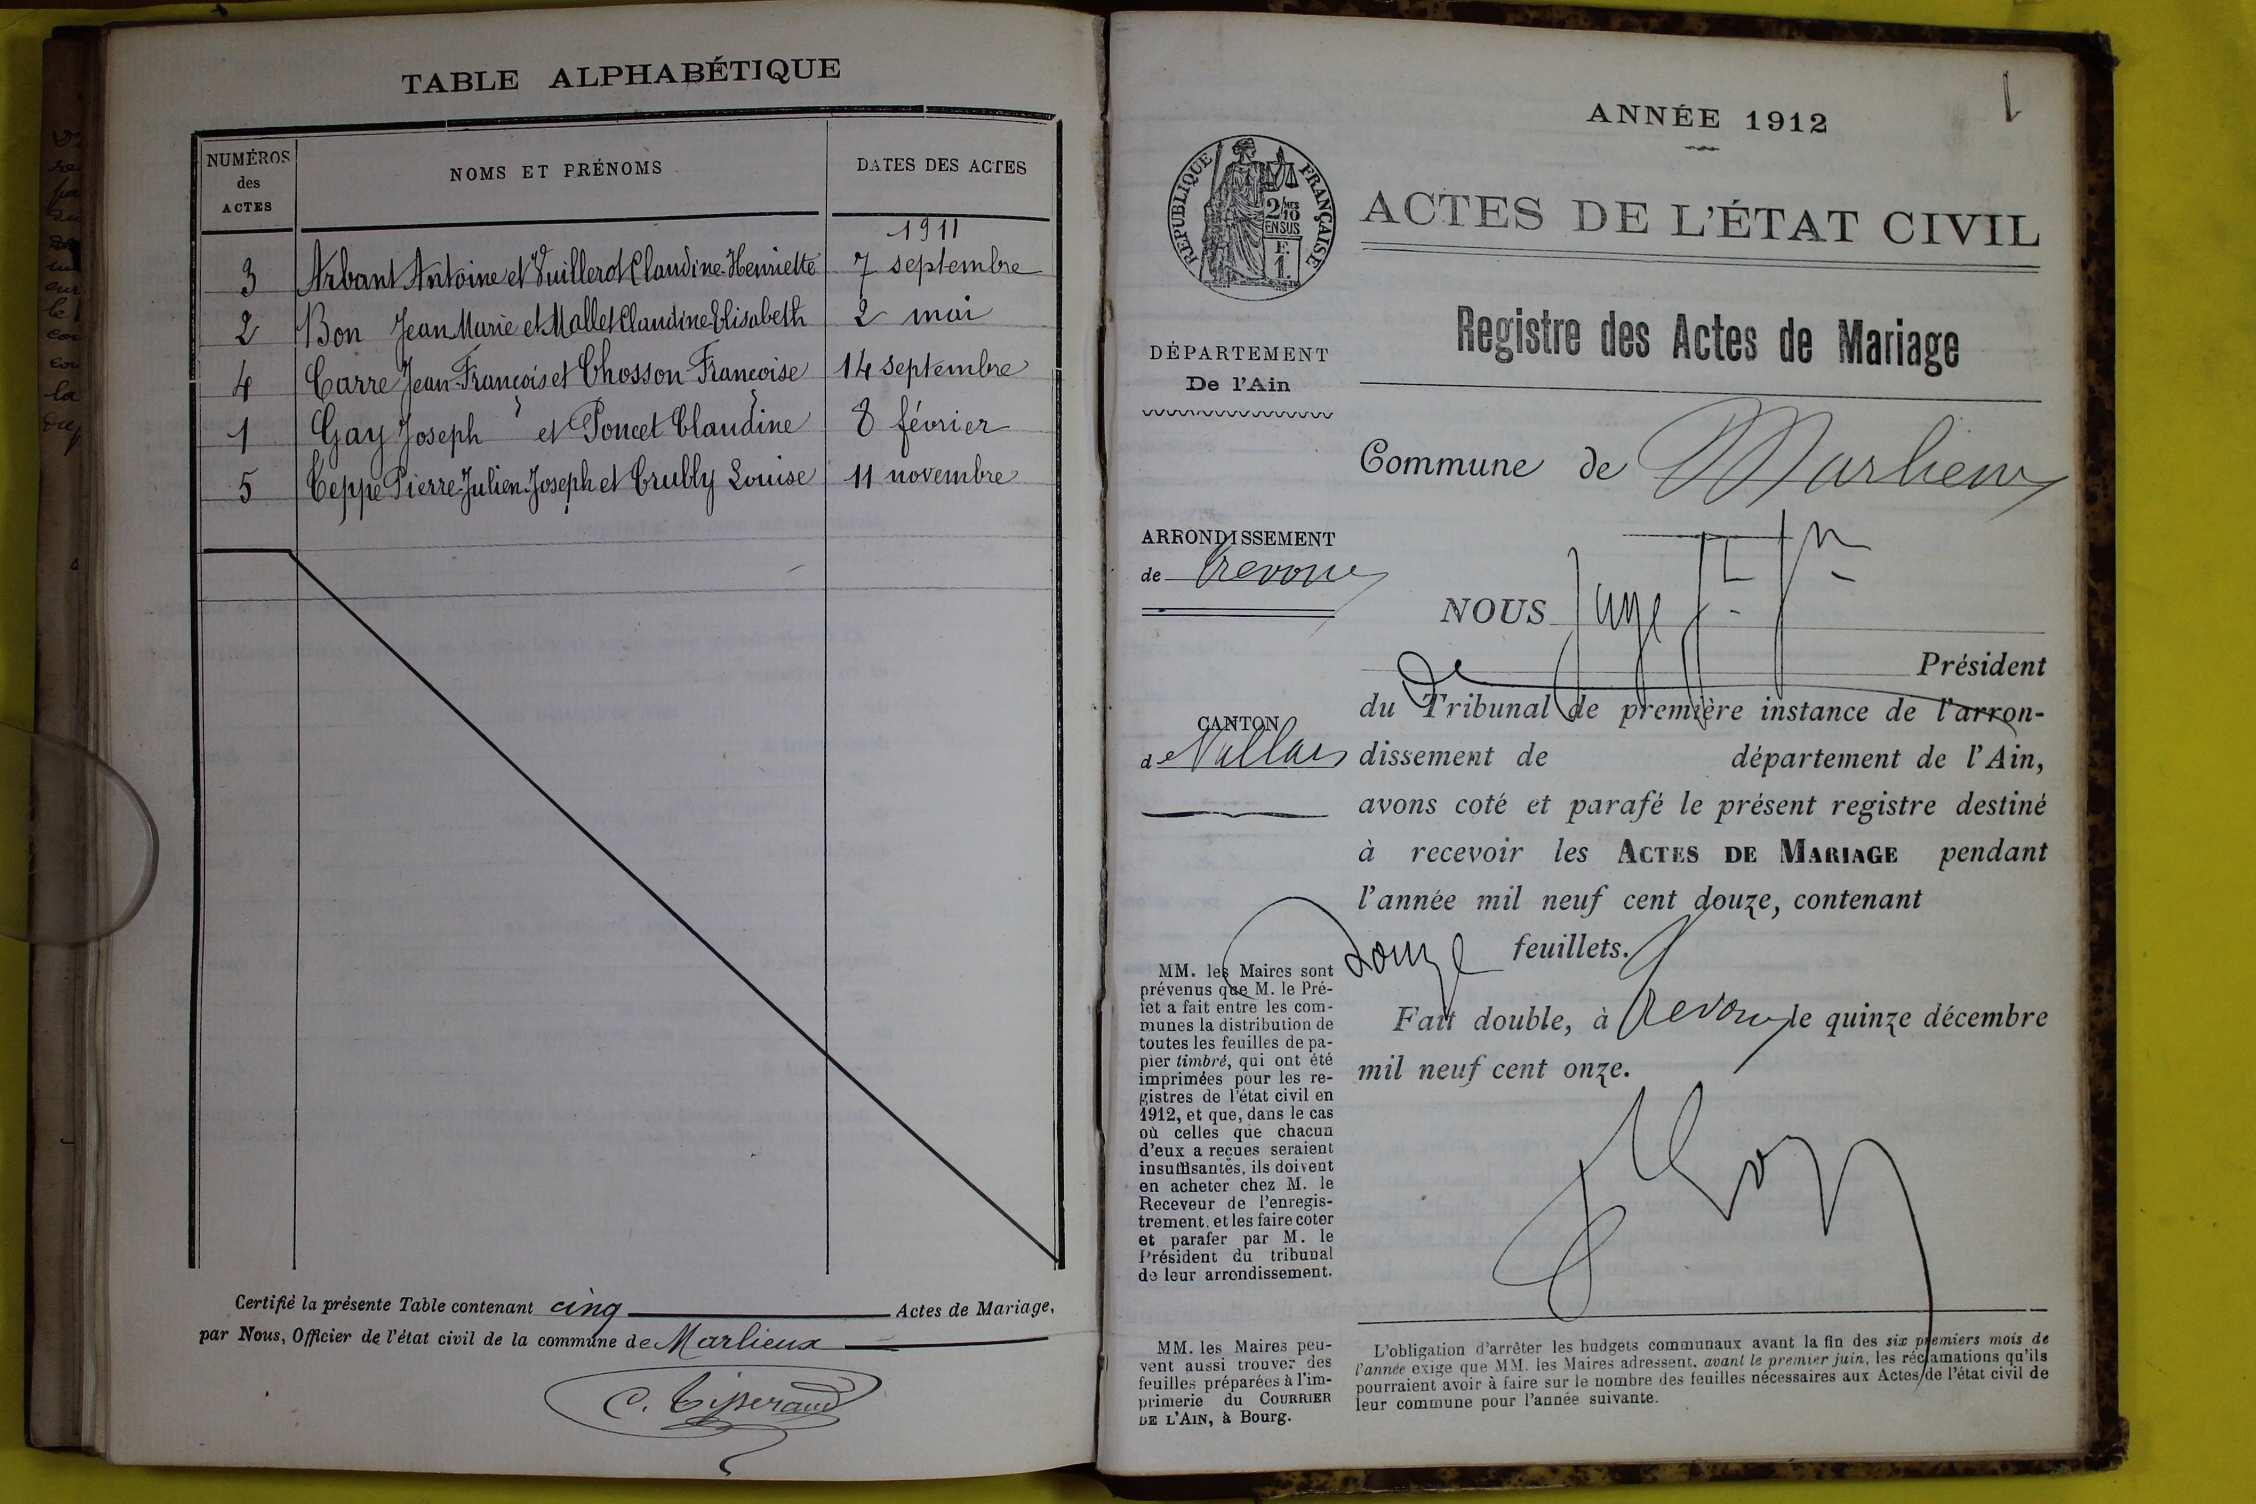 TABLE ALPHABÉTIQUE
NUMÉROS des ACTES
NOMS ET PRÉNOMS
DATES DES ACTES
1911
3 Arbant Antoine et Vuillerot Claudine-Henriette 7 septembre
2 Bon Jean Marie et Mallet Claudine Elisabeth 2 mai
4 Carre Jean-François et Chosson Françoise 14 septembre
1 Gay Joseph et Poncet Claudine 8 février
5 Teppe Pierre-Julien-Joseph et Trubly Louise 11 novembre
Certifié la présente Table contenant cinq Actes de Mariage,
par Nous, Officier de l'état civil de la commune de Marlieux
C. Tisserand
1
ANNÉE 1912
RÉPUBLIQUE FRANÇAISE
2/10 EN SUS
F.
1.
ACTES DE L'ÉTAT CIVIL
Registre des Actes de Mariage
DÉPARTEMENT
De l'Ain
Commune de Marlieux
ARRONDISSEMENT
de Trevoux
CANTON
de Villars
NOUS Juge
de Président
du Tribunal de première instance de l'arron-
dissement de département de l'Ain,
avons coté et parafé le présent registre destiné
à recevoir les ACTES DE MARIAGE pendant
l'année mil neuf cent douze, contenant
Douze feuillets.
Fait double, à Trevoux le quinze décembre
mil neuf cent onze.
MM. les Maires sont
prévenus que M. le Pré-
fet a fait entre les com-
munes la distribution de
toutes les feuilles de pa-
pier timbré, qui ont été
imprimées pour les re-
gistres de l'état civil en
1912, et que, dans le cas
où celles que chacun
d'eux a reçues seraient
insuffisantes, ils doivent
en acheter chez M. le
Receveur de l'enregis-
trement, et les faire coter
et parafer par M. le
Président du tribunal
de leur arrondissement.
MM. les Maires peu-
vent aussi trouver des
feuilles préparées à l'im-
primerie du COURRIER
DE L'AIN, à Bourg.
L'obligation d'arrêter les budgets communaux avant la fin des six premiers mois de
l'année exige que MM. les Maires adressent, avant le premier juin, les réclamations qu'ils
pourraient avoir à faire sur le nombre des feuilles nécessaires aux Actes de l'état civil de
leur commune pour l'année suivante.